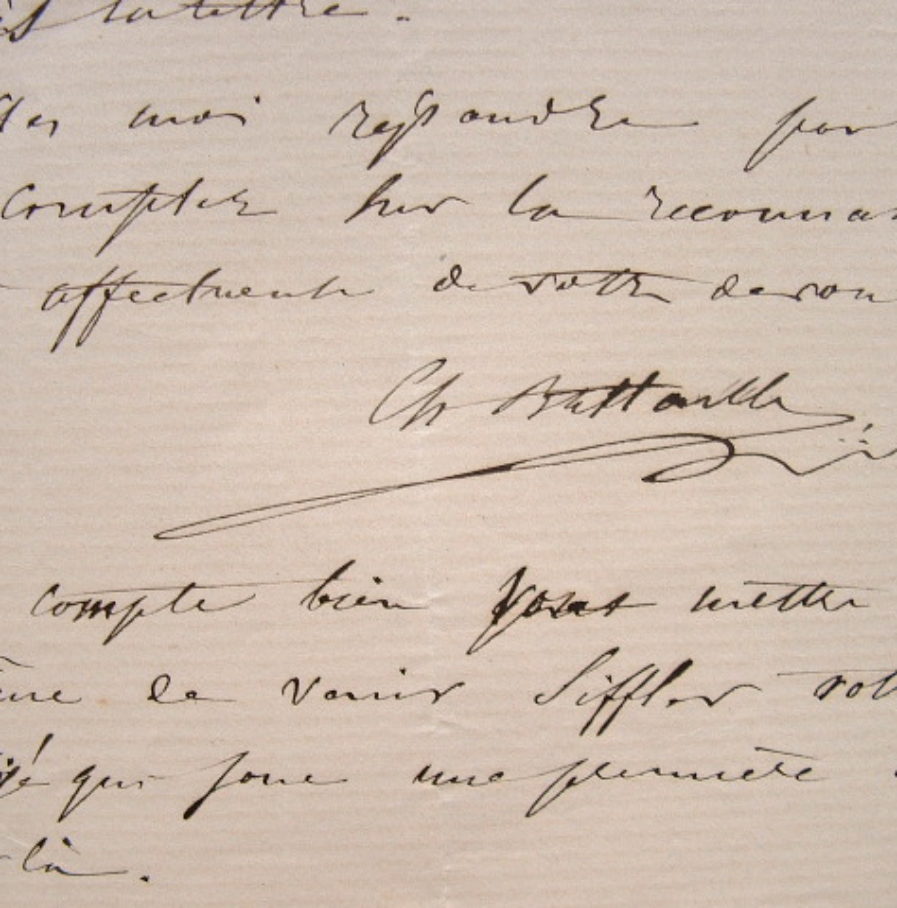 la lettre.
moi répondre par
Comptez sur la reconna
affectueuse de votre dévou
Ch Battaille
compte bien vous mettre
de venir siffler vot
qui joue une première
là.